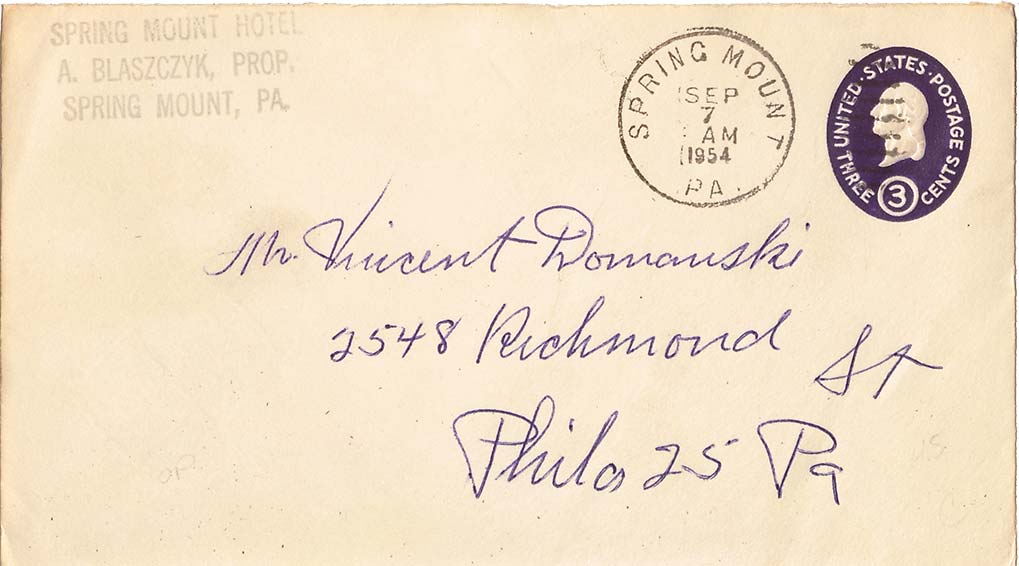 SPRING MOUNT HOTEL
A. BLASZCZYK, PROP.
SPRING MOUNT, PA.
SPRING MOUNT
SEP
7
AM
1954
PA.
UNITED·STATES·POSTAGE
THREE 3 CENTS
Mr. Vincent Domanski
2548 Richmond St
Phila 25 Pa
OP
US